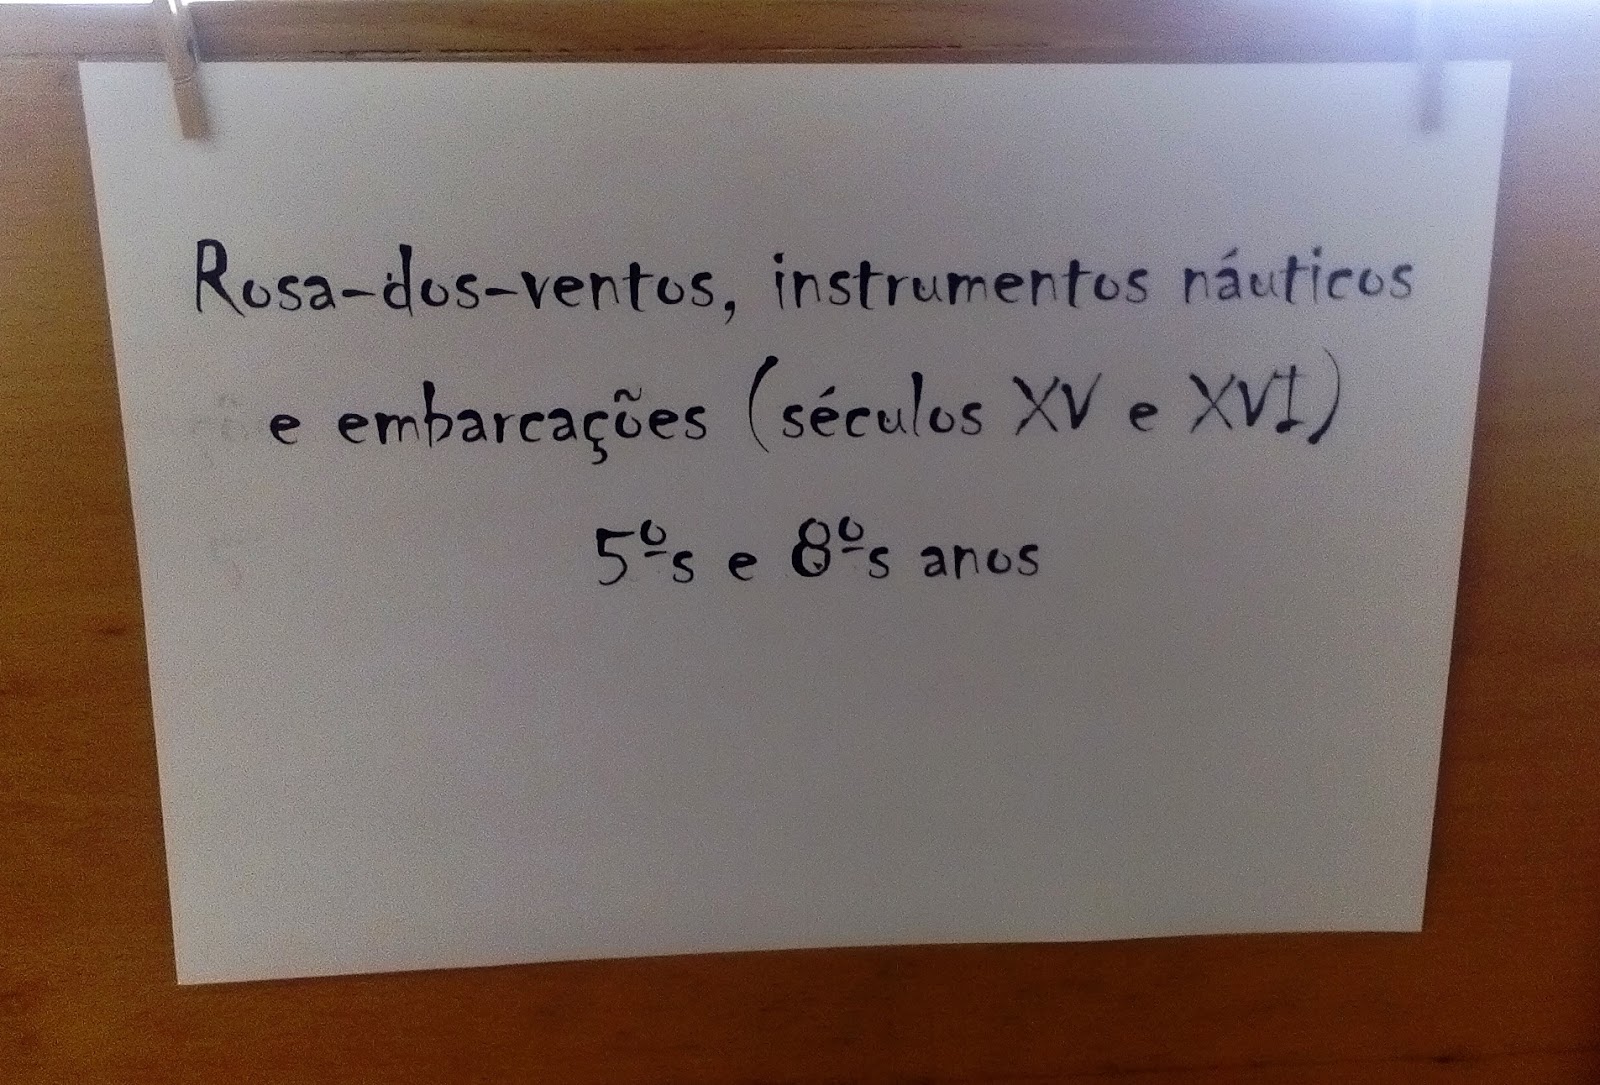 Rosa-dos-ventos, instrumentos náuticos
e embarcações (séculos XV e XVI)
5ºs e 8ºs anos